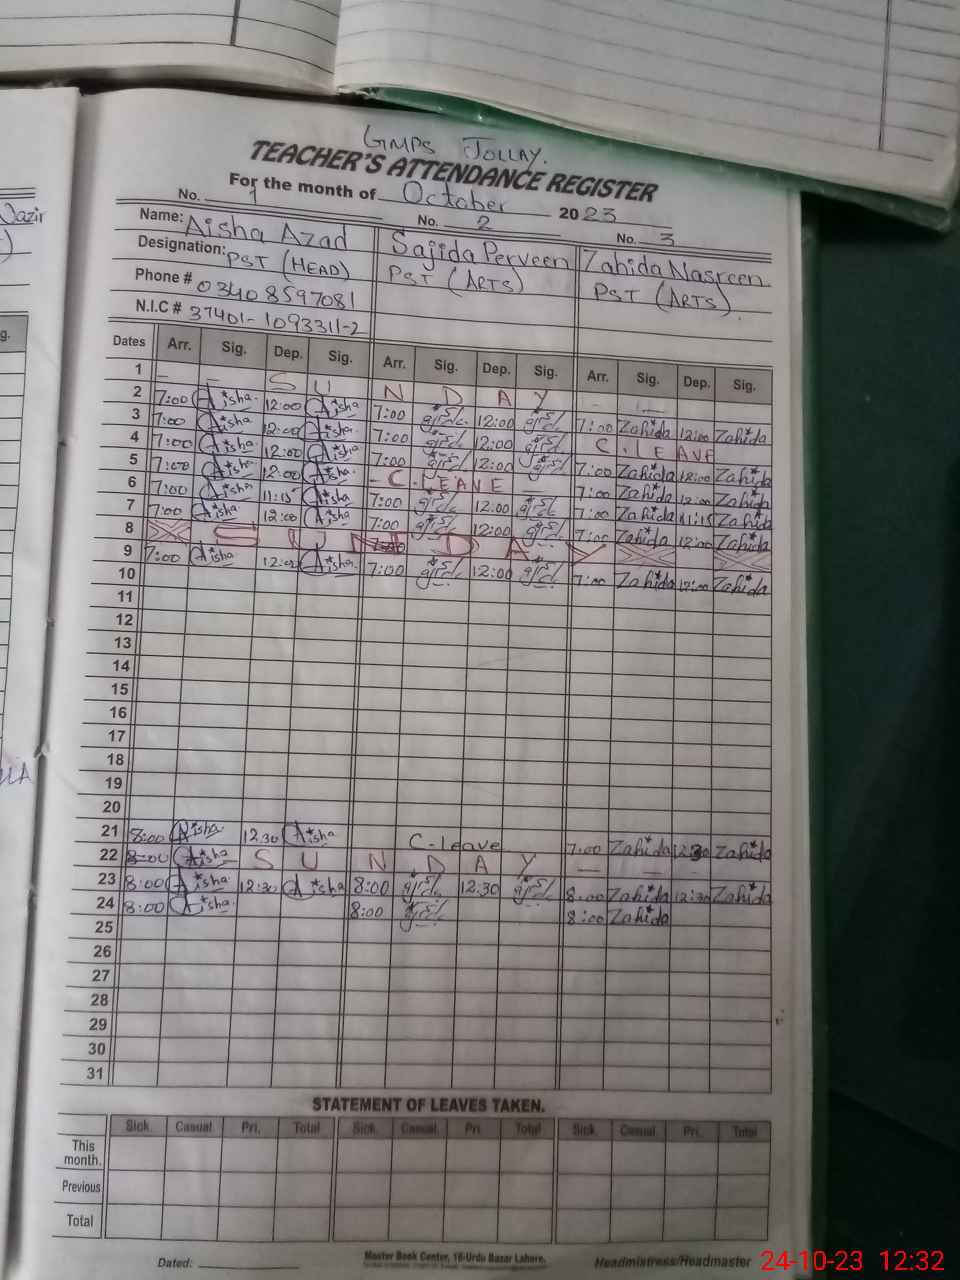 GMPS JOLLAY.
TEACHER'S ATTENDANCE REGISTER
For the month of October 2023
No. 1 No. 2 No. 3
Name: Aisha Azad Sajida Perveen Zahida Nasreen
Designation: PST (HEAD) PST (ARTS) PST (ARTS).
Phone # 03408597081
N.I.C # 37401-1093311-2
Dates Arr. Sig. Dep. Sig. Arr. Sig. Dep. Sig. Arr. Sig. Dep. Sig.
1 - - S U N D A Y - -
2 7:00 Aisha 12:00 Aisha 7:00 12:00 7:00 Zahida 12:00 Zahida
3 7:00 Aisha 12:00 Aisha 7:00 12:00 C. LEAVE
4 7:00 Aisha 12:00 Aisha 7:00 12:00 7:00 Zahida 12:00 Zahida
5 7:00 Aisha 12:00 Aisha - C. LEAVE - 7:00 Zahida 12:00 Zahida
6 7:00 Aisha 11:15 Aisha 7:00 12:00 7:00 Zahida 11:15 Zahida
7 7:00 Aisha 12:00 Aisha 7:00 12:00 7:00 Zahida 12:00 Zahida
8 S U N D A Y
9 7:00 Aisha 12:00 Aisha 7:00 12:00 7:00 Zahida 12:00 Zahida
10
11
12
13
14
15
16
17
18
19
20
21 8:00 Aisha 12.30 Aisha C-leave 7.00 Zahida 12:30 Zahida
22 8:00 Aisha S U N D A Y - -
23 8:00 Aisha 12:30 Aisha 8:00 12.30 8.00 Zahida 12:30 Zahida
24 8:00 Aisha 8:00 8:00 Zahida
25
26
27
28
29
30
31
STATEMENT OF LEAVES TAKEN.
Sick. Casual. Pri. Total Sick. Casual. Pri. Total Sick. Casual. Pri. Total
This
month.
Previous
Total
Dated: Master Book Center, 16-Urdu Bazar Lahore. Headmistress/Headmaster
24-10-23 12:32